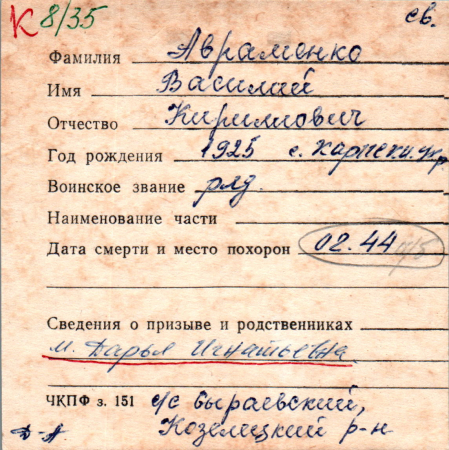 К 8/35 св.
Фамилия Авраменко
Имя Василий
Отчество Кириллович
Год рождения 1925 с. Карпеки, Укр
Воинское звание ряд.
Наименование части
Дата смерти и место похорон 02.44 п/б
Сведения о призыве и родственниках
м. Дарья Игнатьевна.
ЧКПФ з. 151 с/с Сыраевский,
Д-А Козелецкий р-н